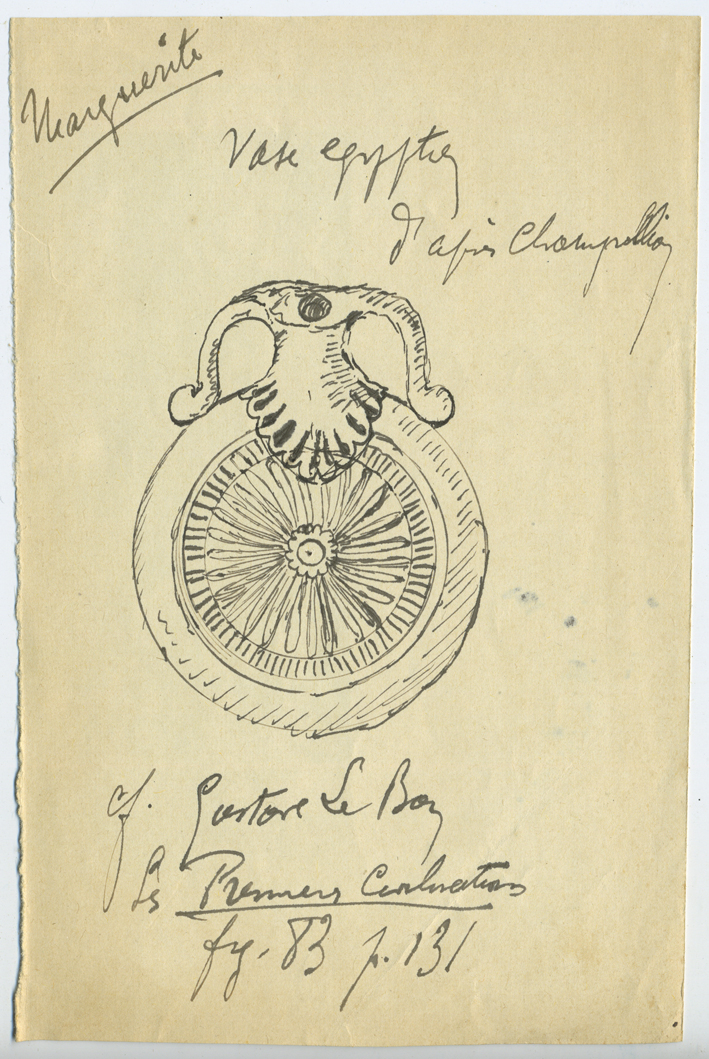 Marguerite
Vase egyptien
d'après Champollion
cf. Gustave Le Bon
Les Premières Civilisations
fig. 83 p. 131